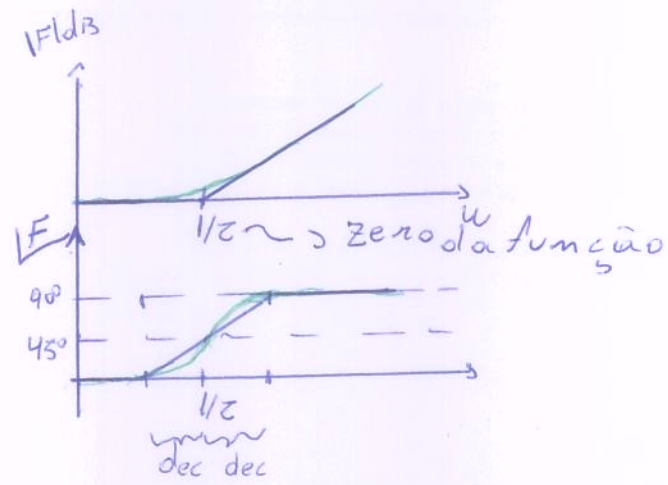 |F|dB
1/τ ~> zero da função
w
∠F
90°
45°
1/τ
dec dec